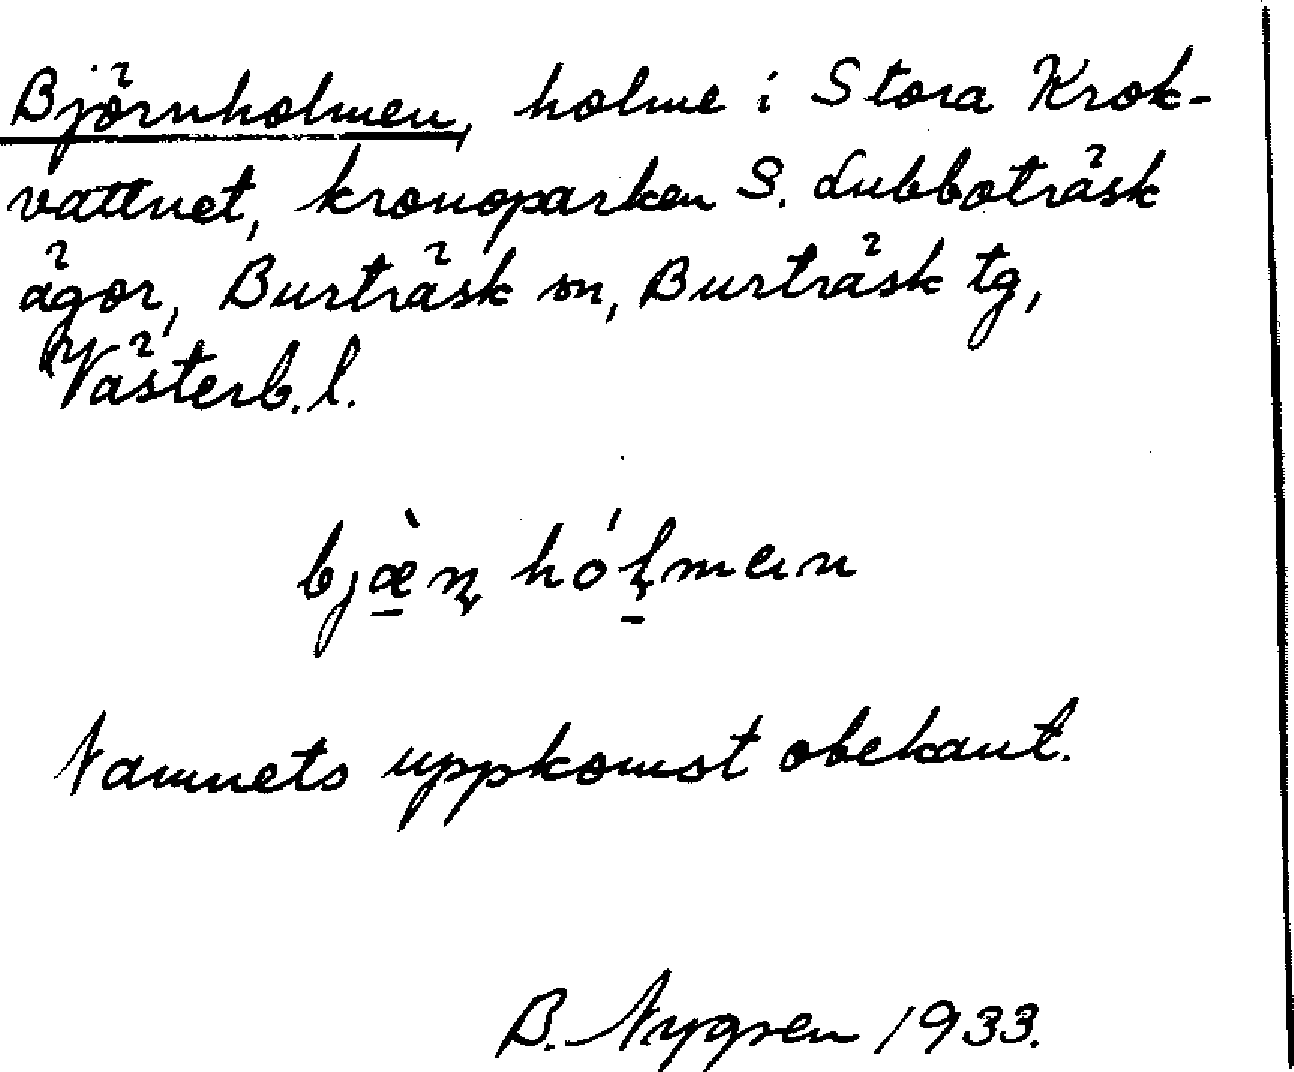 Björnholmen, holme i Stora Krok-
vattnet, kronoparken S. Lubboträsk
ägor, Burträsk sn, Burträsk tg,
Västerb. l.
bjæ̀ṇ hóḷmen
Namnets uppkomst obekant.
B. Nygren 1933.